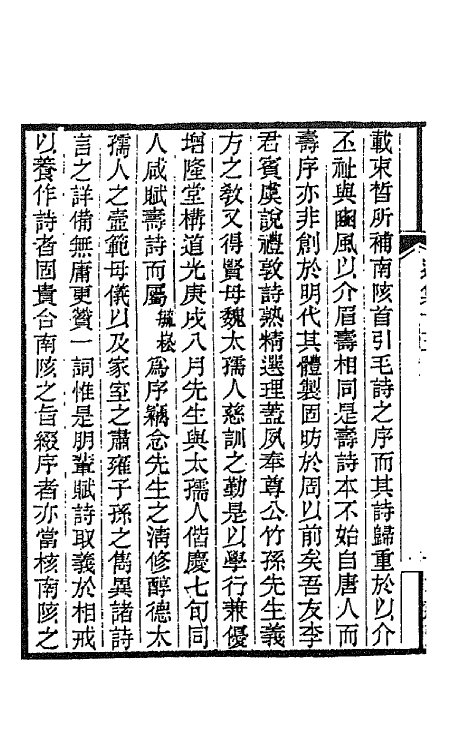 載束晳所補南陔首引毛詩之序而其詩歸重於以介
丕祉與豳風以介眉壽相同是壽詩本不始自唐人而
壽序亦非創於明代其體製固昉於周以前矣吾友李
君賓虞說禮敦詩熟精選理蓋夙奉尊公竹孫先生義
方之敎又得賢母魏太孺人慈訓之勤是以學行兼優
增隆堂構道光庚戌八月先生與太孺人偕慶七旬同
人咸賦壽詩而屬毓崧爲序竊念先生之淸修醇德太
孺人之壼範母儀以及家室之肅雍子孫之雋異諸詩
言之詳備無庸更贊一詞惟是朋輩賦詩取義於相戒
以養作詩者固貴合南陔之旨綴序者亦當核南陔之